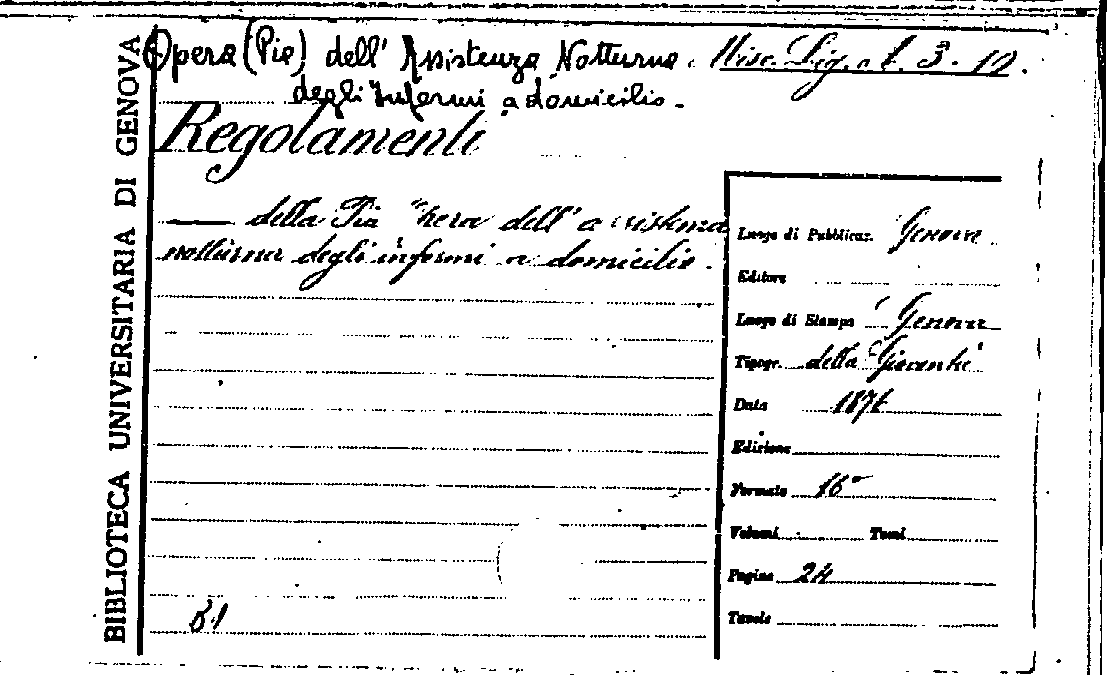 BIBLIOTECA UNIVERSITARIA DI GENOVA
Opera (Pia) dell' Assistenza Notturna Misc. Lig. A. 3. 12.
degli Infermi a domicilio.
Regolamenti
della Pia Opera dell' assistenza
notturna degli infermi a domicilio.
Luogo di Pubblicaz. Genova
Editore
Luogo di Stampa Genova
Tipogr. della Gioventù
Data
Edizione
Formato 16°
Volumi Tomi
Pagine 24
Tavole